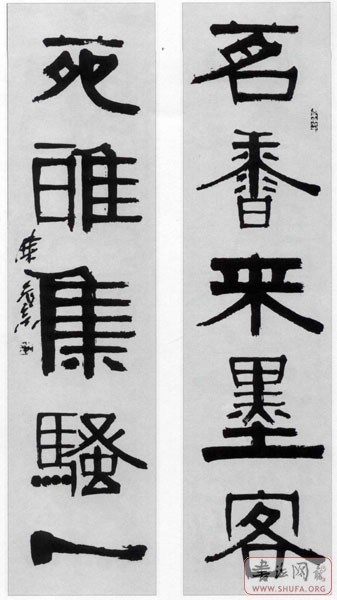 茗香来墨客
苑雅集騷人
WWW.SHUFA.ORG